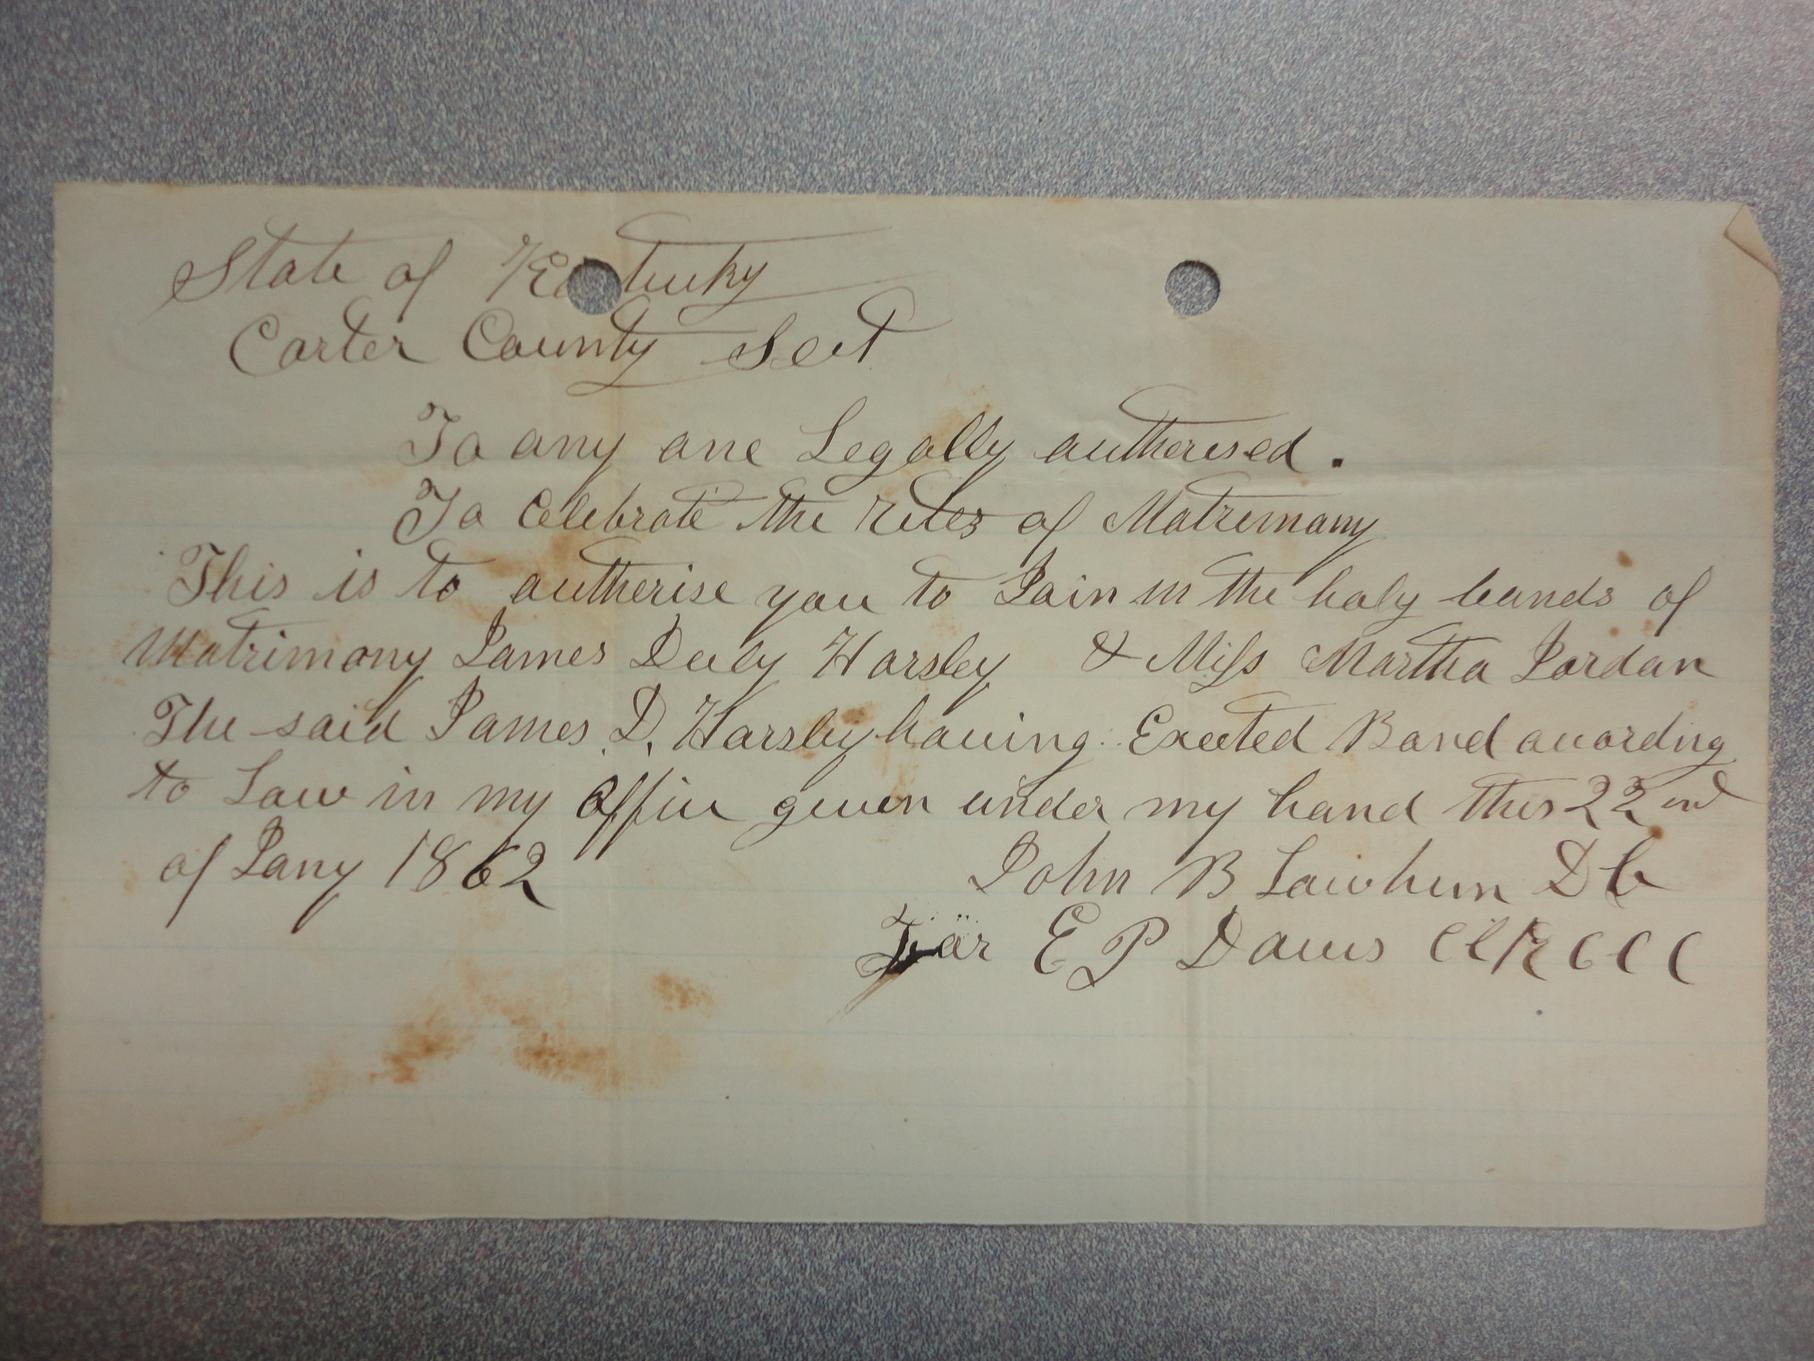 State of Kentucky
Carter County Sct
To any one Legally autherised.
To Celebrate the Rites of Matrimony
This is to autherise you to Join in the holy bands of
Matrimony James Horsley & Miss Martha Jordan
The said James D. Horsley having Exected Bond acording
to Law in my Office given under my hand this 22nd
of Jany 1862
John B Lawhun D C
For E P Davis Clk C C C